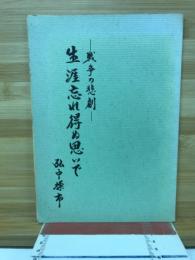 ―戦争の悲劇―
生涯忘れ得ぬ思いで
弘中操市